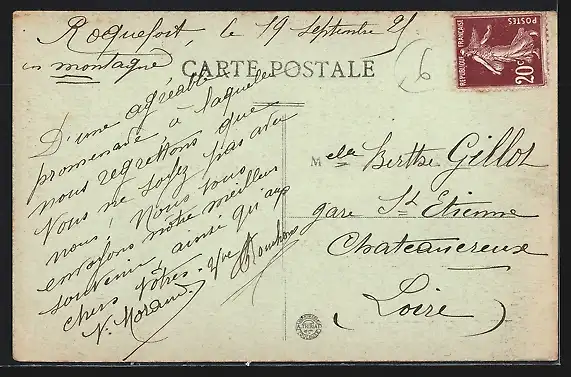 Roquefort, le 19 Septembre 21
en montagne
CARTE POSTALE
D'une agréable
promenade, à laquelle
nous regrettons que
vous ne soyez pas avec
nous! Nous vous
envoyons notre meilleur
souvenir, ainsi qu'aux
chers vôtres.
V. Morand.
Melle Berthe Gillot
gare St Etienne
Chateaucreux
Loire
6
POSTES
REPUBLIQUE FRANÇAISE
20c